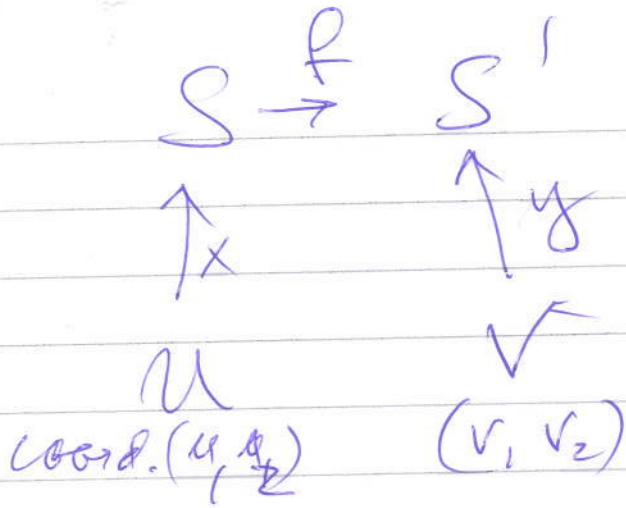 S → f S'
↑ x ↑ y
U V
coord. (u₁, u₂) (v₁, v₂)